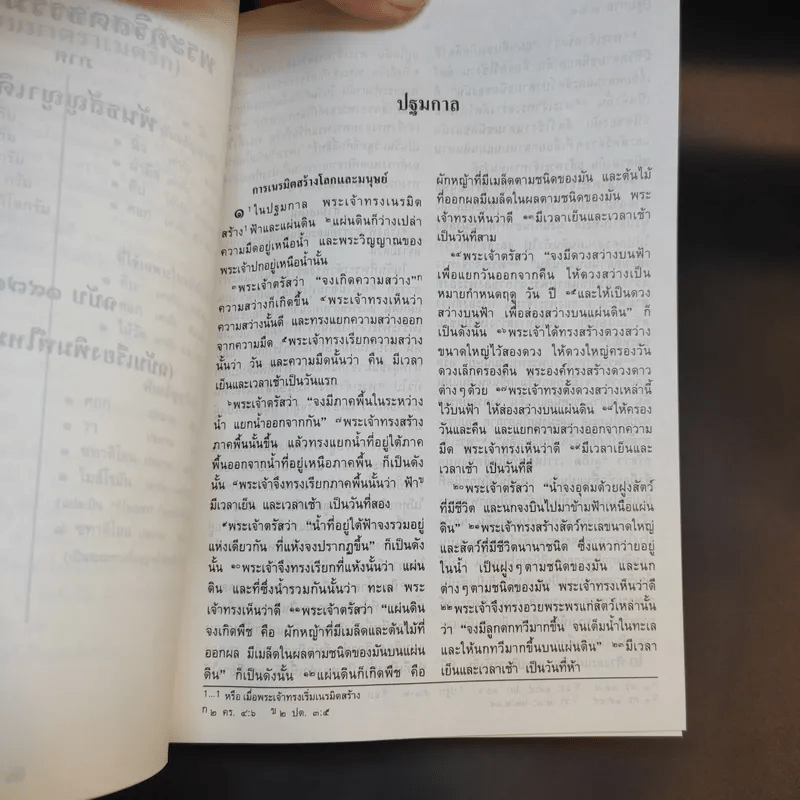 ปฐมกาล
การเนรมิตสร้างโลกและมนุษย์
๑ ¹ในปฐมกาล พระเจ้าทรงเนรมิต
สร้าง¹ฟ้าและแผ่นดิน ๒แผ่นดินก็ว่างเปล่า
ความมืดอยู่เหนือน้ำ และพระวิญญาณของ
พระเจ้าปกอยู่เหนือน้ำนั้น
๓พระเจ้าตรัสว่า “จงเกิดความสว่าง”ก
ความสว่างก็เกิดขึ้น ๔พระเจ้าทรงเห็นว่า
ความสว่างนั้นดี และทรงแยกความสว่างออก
จากความมืด ๕พระเจ้าทรงเรียกความสว่าง
นั้นว่า วัน และความมืดนั้นว่า คืน มีเวลา
เย็นและเวลาเช้าเป็นวันแรก
๖พระเจ้าตรัสว่า “จงมีภาคพื้นในระหว่าง
น้ำ แยกน้ำออกจากกัน” ๗พระเจ้าทรงสร้าง
ภาคพื้นนั้นขึ้น แล้วทรงแยกน้ำที่อยู่ใต้ภาค
พื้นออกจากน้ำที่อยู่เหนือภาคพื้น ก็เป็นดัง
นั้น ๘พระเจ้าจึงทรงเรียกภาคพื้นนั้นว่า ฟ้าข
มีเวลาเย็น และเวลาเช้า เป็นวันที่สอง
๙พระเจ้าตรัสว่า “น้ำที่อยู่ใต้ฟ้าจงรวมอยู่
แห่งเดียวกัน ที่แห้งจงปรากฏขึ้น” ก็เป็นดัง
นั้น ๑๐พระเจ้าจึงทรงเรียกที่แห้งนั้นว่า แผ่น
ดิน และที่ซึ่งน้ำรวมกันนั้นว่า ทะเล พระ
เจ้าทรงเห็นว่าดี ๑๑พระเจ้าตรัสว่า “แผ่นดิน
จงเกิดพืช คือ ผักหญ้าที่มีเมล็ดและต้นไม้ที่
ออกผล มีเมล็ดในผลตามชนิดของมันบนแผ่น
ดิน” ก็เป็นดังนั้น ๑๒แผ่นดินก็เกิดพืช คือ
ผักหญ้าที่มีเมล็ดตามชนิดของมัน และต้นไม้
ที่ออกผลมีเมล็ดในผลตามชนิดของมัน พระ
เจ้าทรงเห็นว่าดี ๑๓มีเวลาเย็นและเวลาเช้า
เป็นวันที่สาม
๑๔พระเจ้าตรัสว่า “จงมีดวงสว่างบนฟ้า
เพื่อแยกวันออกจากคืน ให้ดวงสว่างเป็น
หมายกำหนดฤดู วัน ปี ๑๕และให้เป็นดวง
สว่างบนฟ้า เพื่อส่องสว่างบนแผ่นดิน” ก็
เป็นดังนั้น ๑๖พระเจ้าได้ทรงสร้างดวงสว่าง
ขนาดใหญ่ไว้สองดวง ให้ดวงใหญ่ครองวัน
ดวงเล็กครองคืน พระองค์ทรงสร้างดวงดาว
ต่างๆด้วย ๑๗พระเจ้าทรงตั้งดวงสว่างเหล่านี้
ไว้บนฟ้า ให้ส่องสว่างบนแผ่นดิน ๑๘ให้ครอง
วันและคืน และแยกความสว่างออกจากความ
มืด พระเจ้าทรงเห็นว่าดี ๑๙มีเวลาเย็นและ
เวลาเช้า เป็นวันที่สี่
๒๐พระเจ้าตรัสว่า “น้ำจงอุดมด้วยฝูงสัตว์
ที่มีชีวิต และนกจงบินไปมาข้ามฟ้าเหนือแผ่น
ดิน” ๒๑พระเจ้าทรงสร้างสัตว์ทะเลขนาดใหญ่
และสัตว์ที่มีชีวิตนานาชนิด ซึ่งแหวกว่ายอยู่
ในน้ำ เป็นฝูงๆตามชนิดของมัน และนก
ต่างๆตามชนิดของมัน พระเจ้าทรงเห็นว่าดี
๒๒พระเจ้าจึงทรงอวยพระพรแก่สัตว์เหล่านั้น
ว่า “จงมีลูกดกทวีมากขึ้น จนเต็มน้ำในทะเล
และให้นกทวีมากขึ้นบนแผ่นดิน” ๒๓มีเวลา
เย็นและเวลาเช้า เป็นวันที่ห้า
1...1 หรือ เมื่อพระเจ้าทรงเริ่มเนรมิตสร้าง
ก ๒ คร. ๔:๖ ข ๒ ปต. ๓:๕